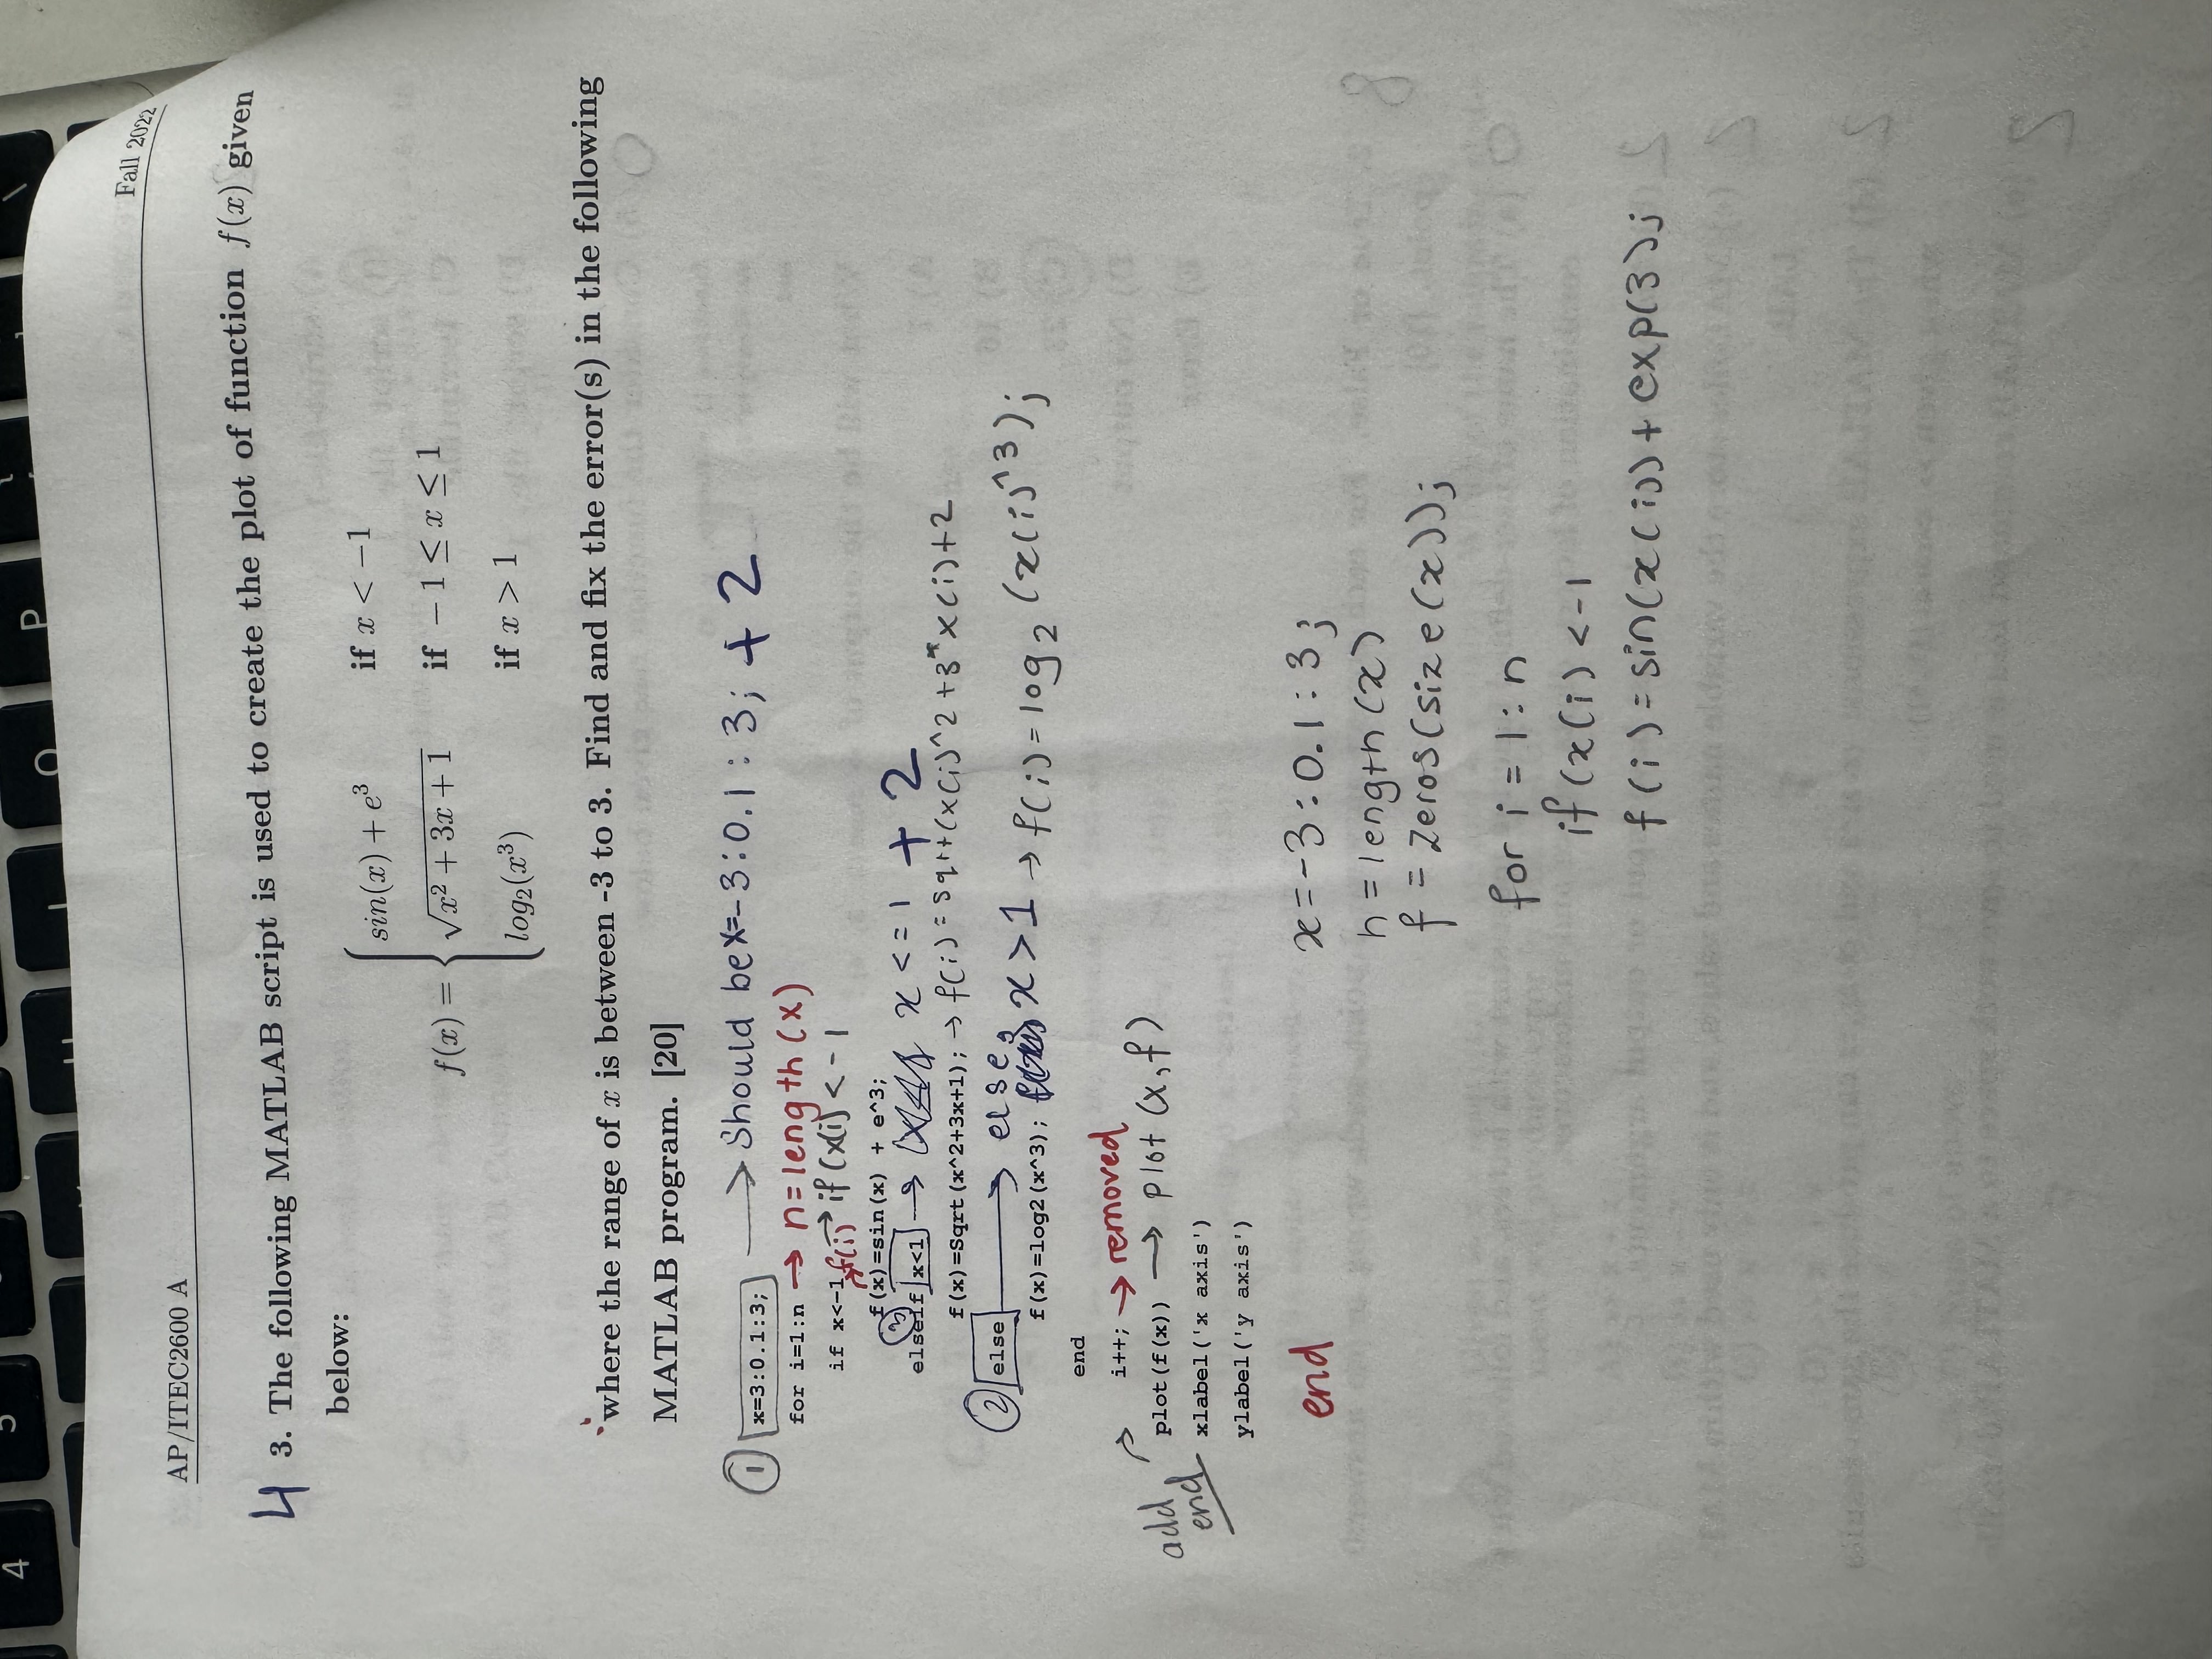 AP/ITEC2600 A Fall 2022
4
3. The following MATLAB script is used to create the plot of function f(x) given
below:
f(x) = { sin(x) + e³ if x < −1
√(x² + 3x + 1) if − 1 ≤ x ≤ 1
log₂(x³) if x > 1
where the range of x is between -3 to 3. Find and fix the error(s) in the following
MATLAB program. [20]
① x=3:0.1:3; → Should be x=-3:0.1:3; + 2
for i=1:n → n=length(x)
if x<-1 → if (x(i) < -1
f(i)
③ f(x)=sin(x) + e^3;
elseif x<1 → x <= 1 + 2
f(x)=Sqrt(x^2+3x+1); → f(i)=sqrt(x(i)^2+3*x(i)+2
② else → else, x>1 → f(i)=log₂(x(i)^3);
f(x)=log2(x^3);
end
i++; → removed
add end
plot(f(x)) → plot(x,f)
xlabel('x axis')
ylabel('y axis')
end
x=-3:0.1:3;
n=length(x)
f=zeros(size(x));
for i=1:n
if(x(i)<-1
f(i)=sin(x(i))+exp(3);